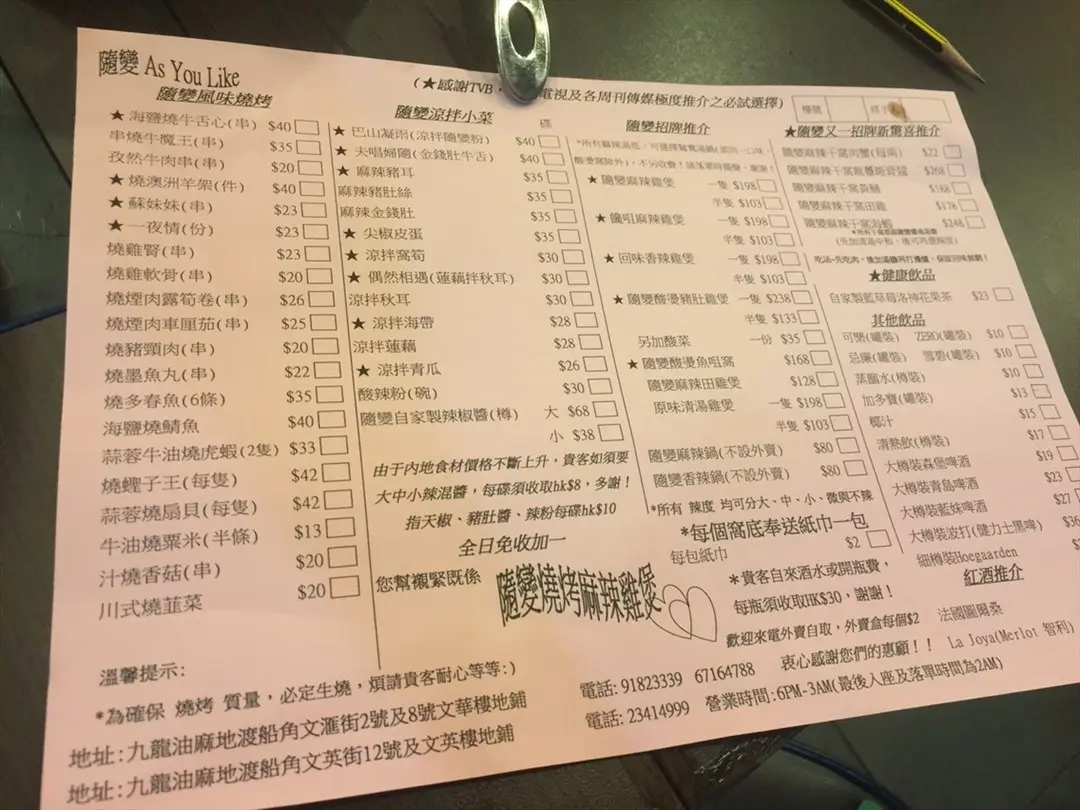 隨變 As You Like
(★感謝TVB,
電視及各周刊傳媒極度推介之必試選擇)
檯號
隨變風味燒烤
★ 海鹽燒牛舌心(串) $40
串燒牛魔王(串) $35
孜然牛肉串(串) $20
★ 燒澳洲羊架(件) $40
★ 蘇妹妹(串) $23
★ 一夜情(份) $23
燒雞腎(串) $23
燒雞軟骨(串) $20
燒煙肉露筍卷(串) $26
燒煙肉車厘茄(串) $25
燒豬頸肉(串) $20
燒墨魚丸(串) $22
燒多春魚(6條) $35
海鹽燒鯖魚 $40
蒜蓉牛油燒虎蝦(2隻) $33
燒蟶子王(每隻) $42
蒜蓉燒扇貝(每隻) $42
牛油燒粟米(半條) $13
汁燒香菇(串) $20
川式燒韮菜 $20
隨變涼拌小菜 碟
★ 巴山凝雨(涼拌隨變粉) $40
★ 夫唱婦隨(金錢肚牛舌) $40
★ 麻辣豬耳 $35
麻辣豬肚絲 $35
麻辣金錢肚 $35
★ 尖椒皮蛋 $35
★ 涼拌窩筍 $30
★ 偶然相遇(蓮藕拌秋耳) $30
涼拌秋耳 $30
★ 涼拌海帶 $28
涼拌蓮藕 $28
★ 涼拌青瓜 $26
酸辣粉(碗) $30
隨變自家製辣椒醬(樽) 大 $68
小 $38
由于內地食材價格不斷上升，貴客如須要
大中小辣混醬，每碟須收取hk$8，多謝！
指天椒、豬肚醬、辣粉每碟hk$10
全日免收加一
您幫襯緊既係
隨變燒烤麻辣雞煲
隨變招牌推介
★ 隨變麻辣雞煲 一隻 $198
半隻 $103
★ 饞咀麻辣雞煲 一隻 $198
半隻 $103
★ 回味香辣雞煲 一隻 $198
半隻 $103
★ 隨變酸瀅豬肚雞煲 一隻 $238
半隻 $133
另加酸菜 一份 $35
★ 隨變酸瀅魚咀窩 $168
隨變麻辣田雞煲 $128
原味清湯雞煲 一隻 $198
半隻 $103
隨變麻辣鍋(不設外賣) $80
隨變香辣鍋(不設外賣) $80
*所有 辣度 均可分大、中、小、微與不辣
*每個窩底奉送紙巾一包
每包紙巾 $2
*貴客自來酒水或開瓶費，
每瓶須收取HK$30，謝謝！
歡迎來電外賣自取，外賣盒每個$2
衷心感謝您們的惠顧！！
★隨變又一招牌新驚喜推介
隨變麻辣干窩肉蟹(每兩) $22
$268
$188
隨變麻辣干窩田雞 $178
隨變麻辣干窩海蝦 $248
★健康飲品
自家製藍草莓洛神花果茶 $23
其他飲品
可樂(罐裝) ZERO(罐裝) $10
忌廉(罐裝) 雪碧(罐裝) $10
蒸餾水(樽裝) $10
加多寶(罐裝) $13
椰汁 $15
清熱飲(樽裝) $17
大樽裝森堡啤酒 $19
大樽裝青島啤酒 $23
大樽裝藍妹啤酒 $27
大樽裝波打(健力士黑啤) $36
細樽裝Hoegaarden
紅酒推介
法國圖爾桑
La Joya(Merlot 智利)
溫馨提示:
*為確保 燒烤 質量，必定生燒，煩請貴客耐心等等:)
地址:九龍油麻地渡船角文滙街2號及8號文華樓地鋪
地址:九龍油麻地渡船角文英街12號及文英樓地鋪
電話: 91823339 67164788
電話: 23414999 營業時間:6PM-3AM(最後入座及落單時間為2AM)